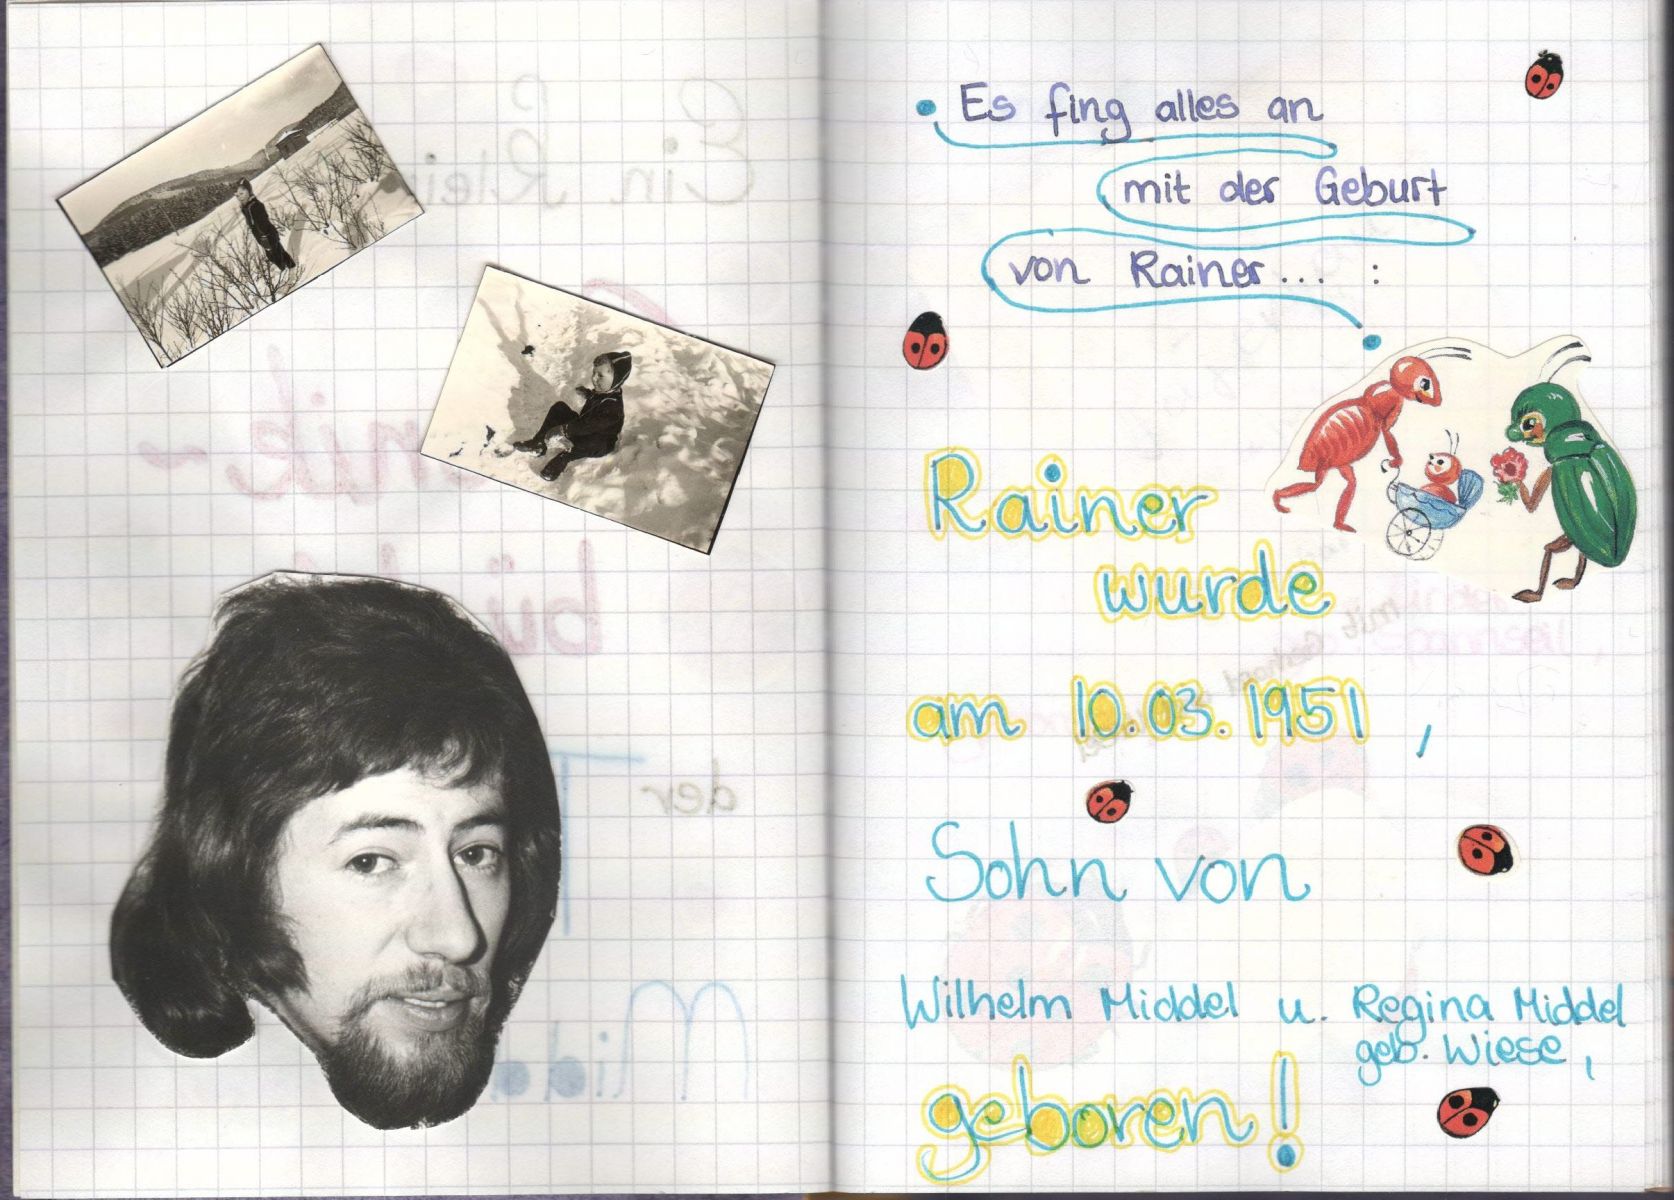 Es fing alles an
mit der Geburt
von Rainer... :
Rainer
wurde
am 10.03.1951,
Sohn von
Wilhelm Middel u. Regina Middel
geb. Wiese,
geboren!